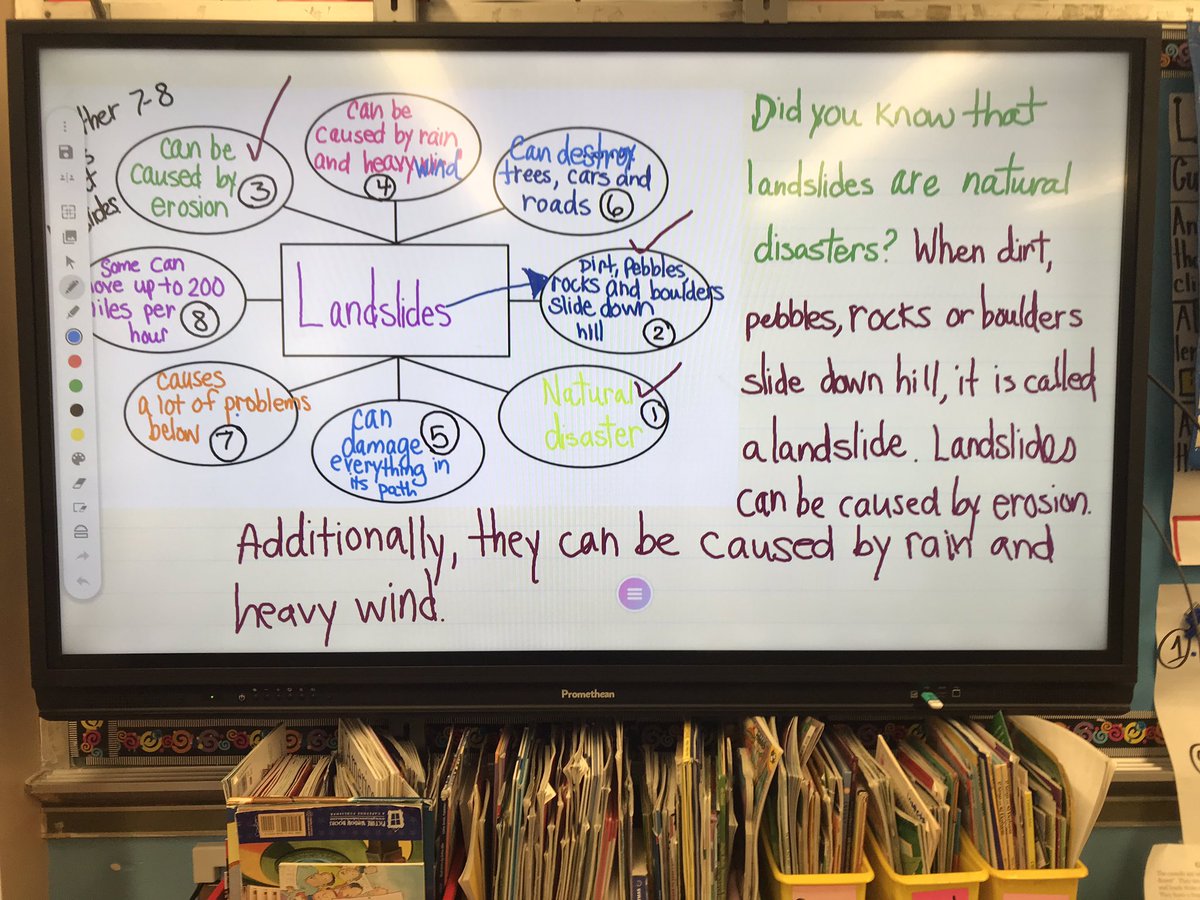 ther 7-8
can be
caused by
erosion
3
can be
caused by rain
and heavy wind
4
Can destroy
trees, cars and
roads 6
Some can
ove up to 200
iles per
hour
8
Landslides
Dirt, Pebbles,
rocks and boulders
slide down
hill
2
causes
a lot of problems
below
7
can
damage
everything in
its path
5
Natural
disaster
1
Did you know that
landslides are natural
disasters? When dirt,
pebbles, rocks or boulders
slide down hill, it is called
a landslide. Landslides
can be caused by erosion.
Additionally, they can be caused by rain and
heavy wind.
Promethean
PICTURE WINDOW BOOKS
1.